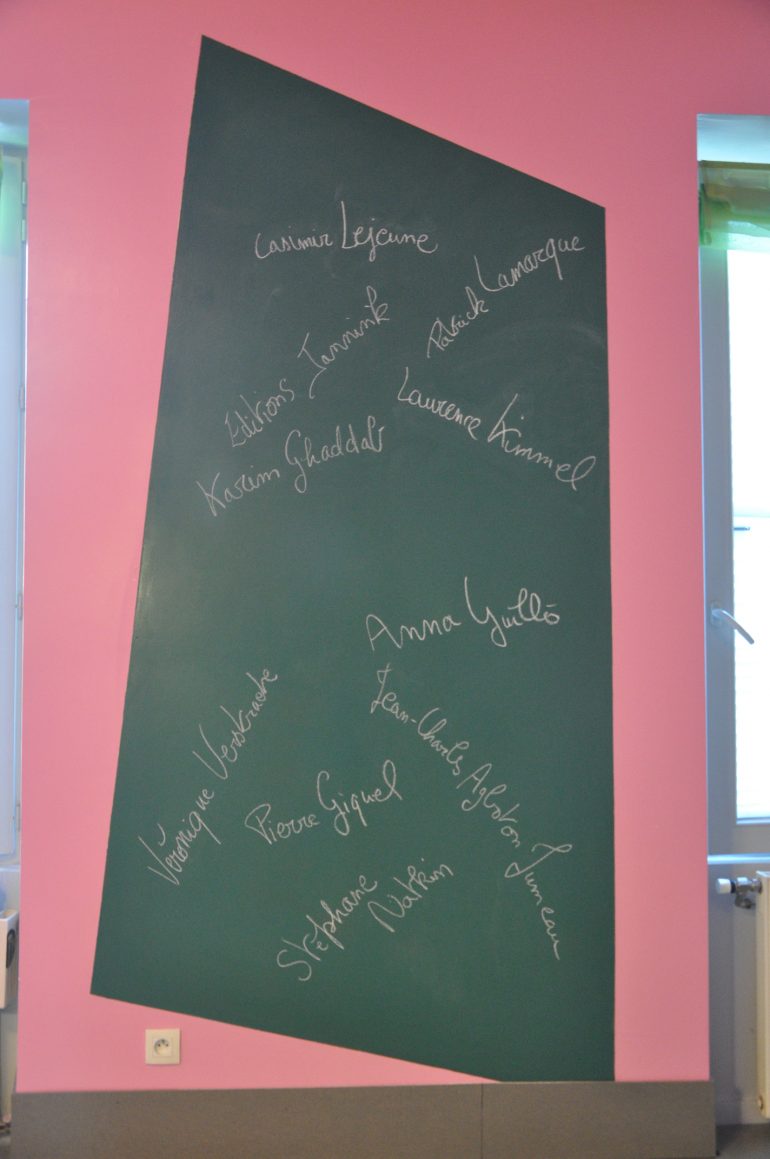 Casimir Lejeune
Patrick Lamarque
Editions Jannink
Laurence Kimmel
Karim Ghaddab
Anna Guilló
Jean-Charles Agboton Jumeau
Véronique Verstraete
Pierre Giquel
Stéphane
Natkin